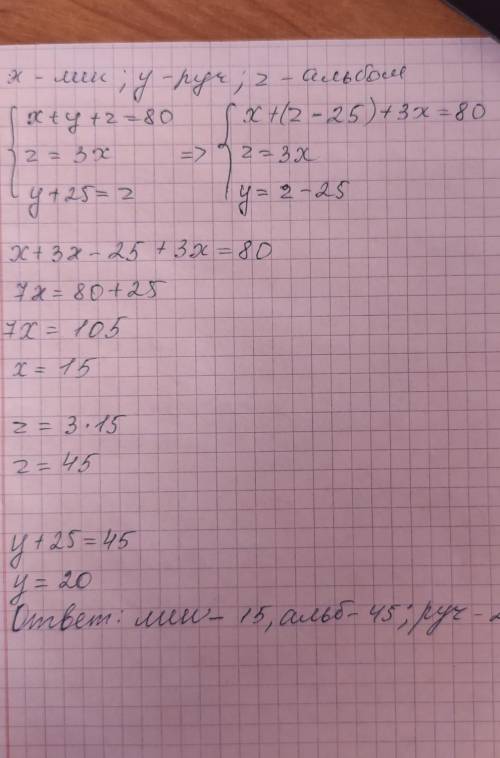 x - лин ; y - руч ; z - альбом
x + y + z = 80
z = 3x
y + 25 = z
=>
x + (z - 25) + 3x = 80
z = 3x
y = z - 25
x + 3x - 25 + 3x = 80
7x = 80 + 25
7x = 105
x = 15
z = 3 · 15
z = 45
y + 25 = 45
y = 20
Ответ: лин - 15, альб - 45; руч - 2